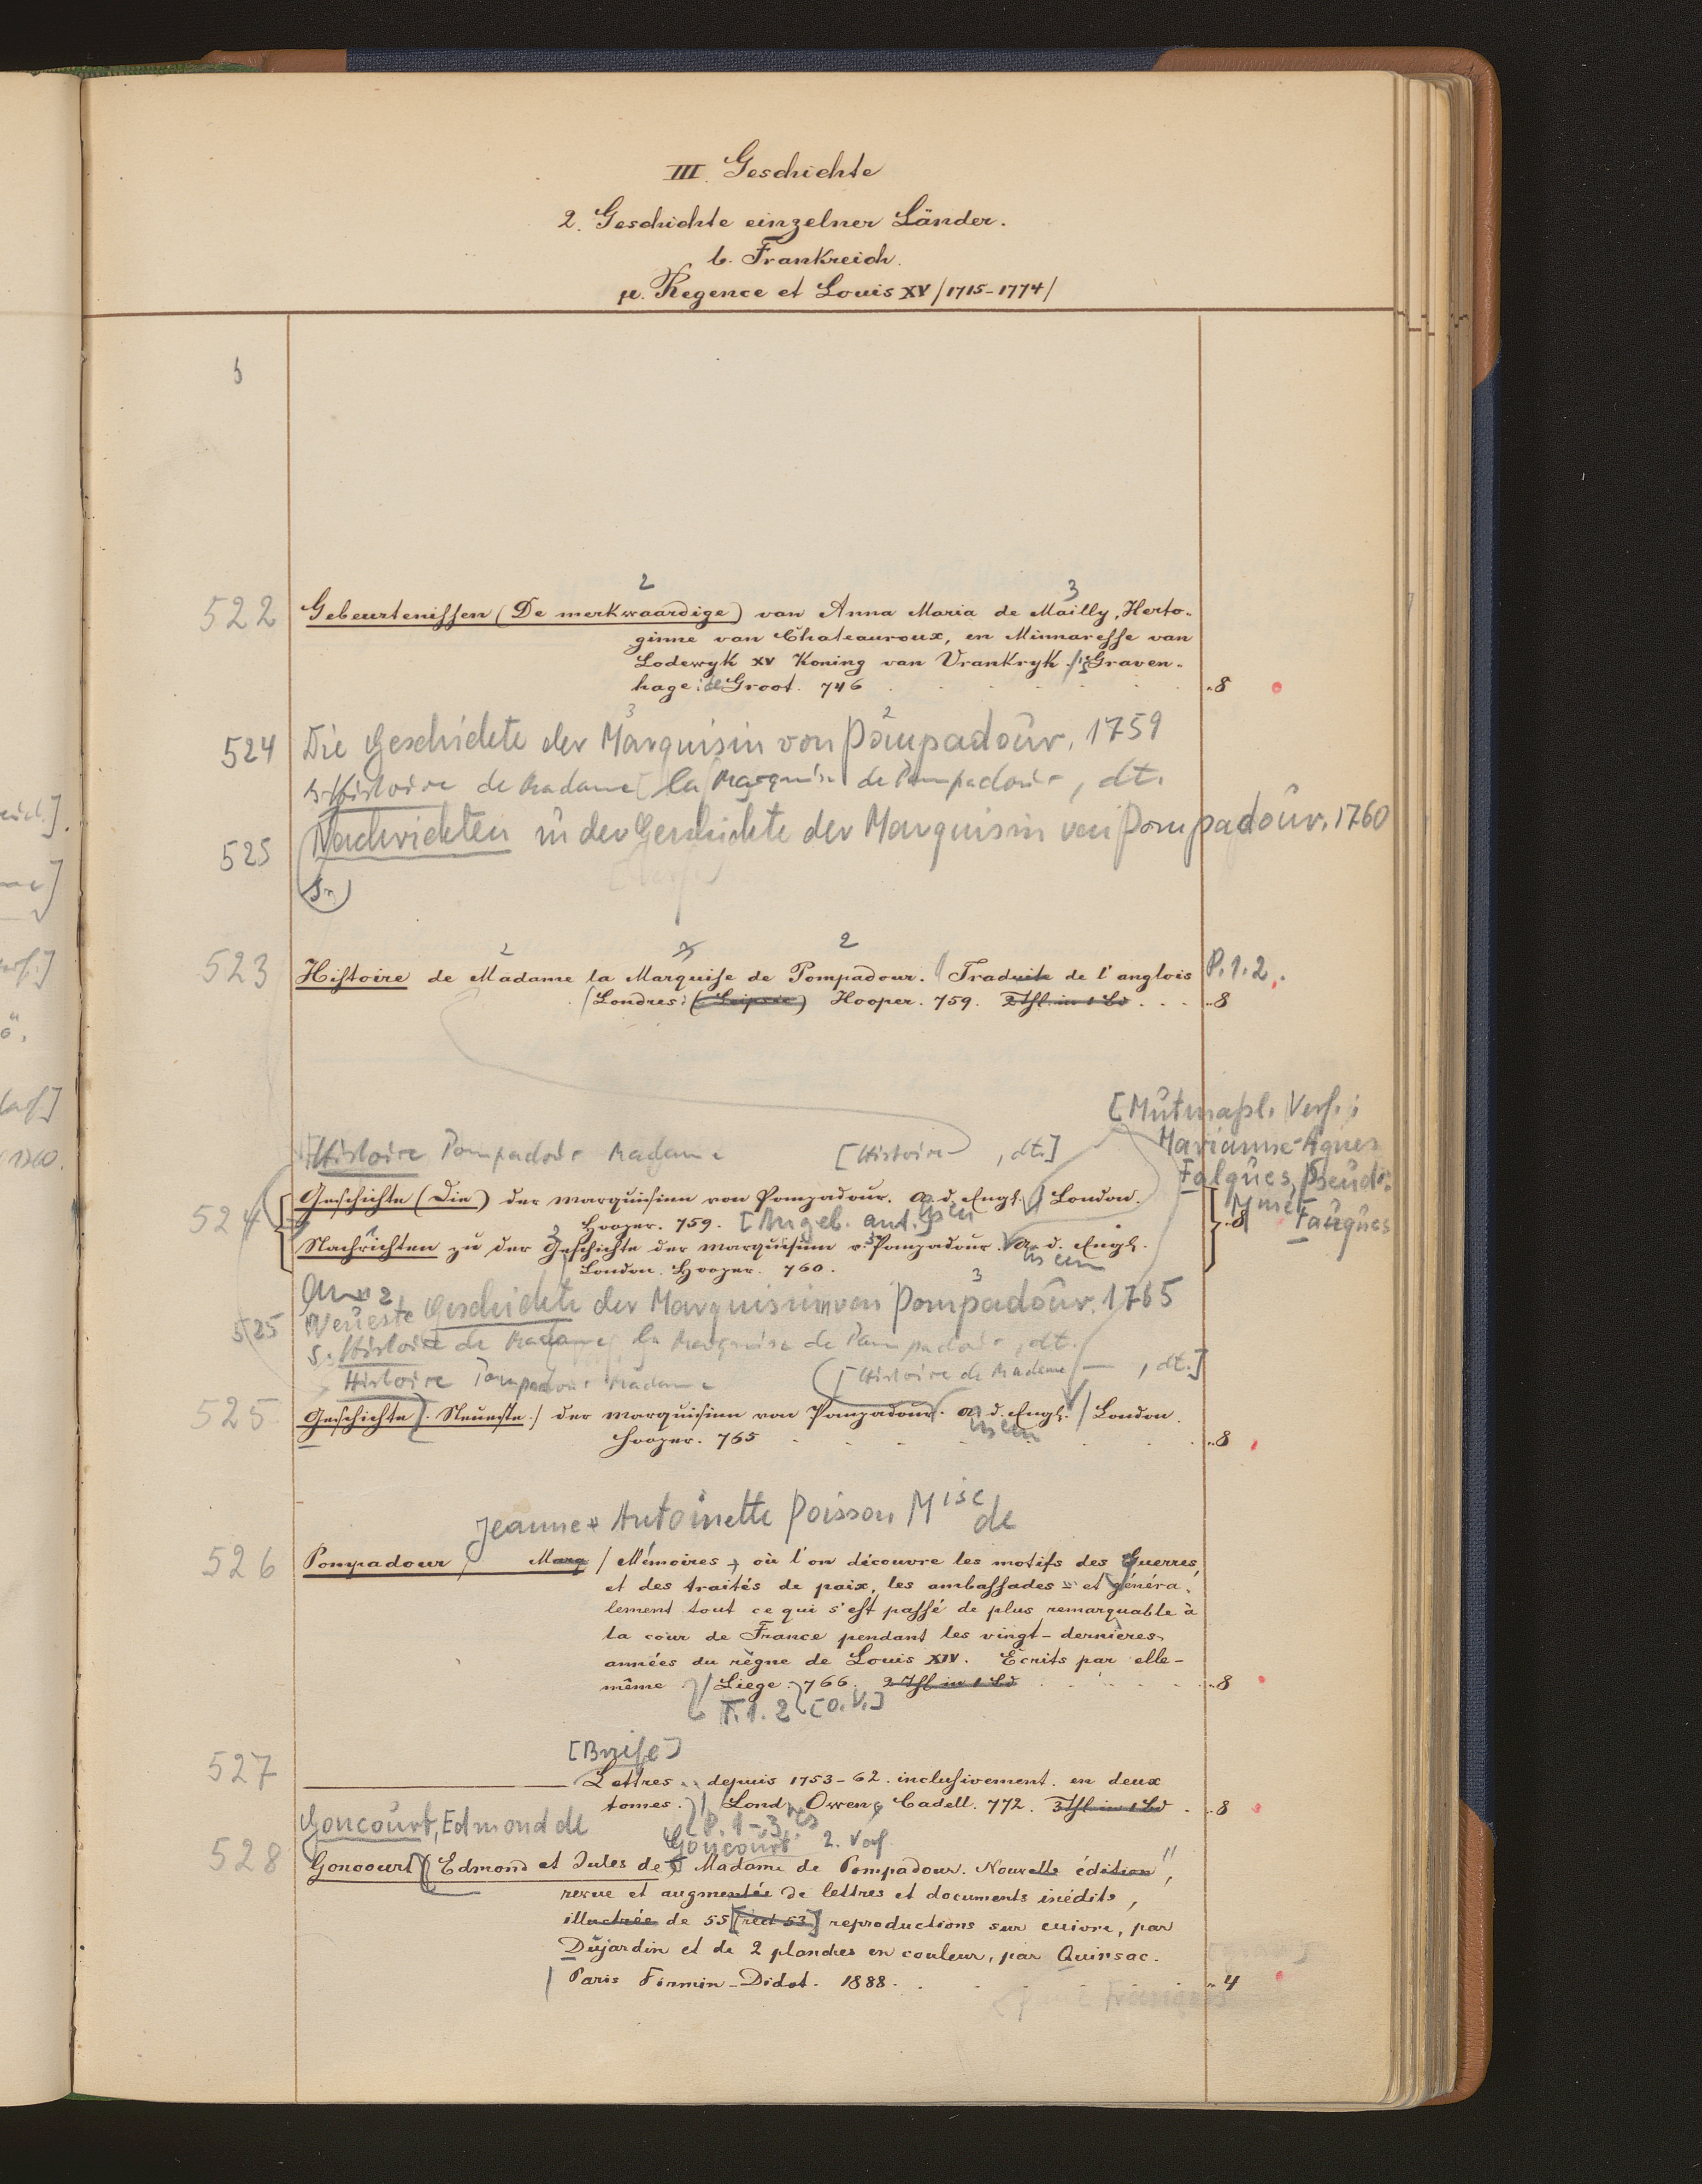 III. Geschichte
2. Geschichte einzelner Länder.
b. Frankreich.
µ. Regence et Louis XV /1715-1774/
2 3
522 Gebeurtenissen (De merkwaardige) van Anna Maria de Mailly, Herto-
ginne van Chateauroux, en Minnaresse van
Lodewyk XV Koning van Vrankryk. /'s Graven-
hage: de Groot. 746 ..8
3 2
524 Die Geschichte der Marquisin von Pompadour. 1759
s. Histoire de Madame la Marquise de Pompadour, dt.
525 Nachrichten zu der Geschichte der Marquisin von Pompadour. 1760
2 2
523 Histoire de Madame la Marquise de Pompadour. Traduite de l'anglois P. 1. 2.
/Londres: (Leipsic) Hooper. 759. 2 Thl. in 1 Bd ..8
[Mutmaßl. Verf.:
Marianne-Agnes
Falques, Pseud.:
Mme Fauques
Histoire Pompadour Madame [Histoire , dt.]
524 Geschichte (Die) der Marquisinn von Pompadour. A. d. Engl. / London.
Hooper. 759. [Angeb. ant.] ..8
Nachrichten zu der Geschichte der Marquisinn v. Pompadour. A. d. Engl.
London. Hooper. 760.
3
525 Neueste Geschichte der Marquisin von Pompadour. 1765
s. Histoire de Madame la Marquise de Pompadour, dt.
Histoire Pompadour Madame [Histoire de Madame — , dt.]
525 Geschichte /. Neueste ./ der Marquisinn von Pompadour. A. d. Engl. / London.
Hooper. 765 ..8
Jeanne Antoinette Poisson Mise de
526 Pompadour, Marq / Mémoires, où l'on découvre les motifs des Guerres,
et des traités de paix, les ambassades et généra-
lement tout ce qui s'est passé de plus remarquable à
la cour de France pendant les vingt-dernières
années du règne de Louis XIV. Ecrits par elle-
même. / Liege. 766. 2 Thl in 1 Bd ..8
T. 1. 2 [o. V.]
[Briefe]
527 Lettres depuis 1753-62. inclusivement. en deux
tomes. / Lond. Owen, Cadell. 772. 3 Thl in 1 Bd ..8
P. 1-3
Goncourt, Edmond de
Goncourt 2. Verf.
528 Goncourt Edmond et Jules de Madame de Pompadour. Nouvelle édition,
revue et augmentée de lettres et documents inédits,
illustrée de 55 [rect 53] reproductions sur cuivre, par
Dujardin et de 2 planches en couleur, par Quinsac.
/ Paris Firmin-Didot. 1888. .. 4